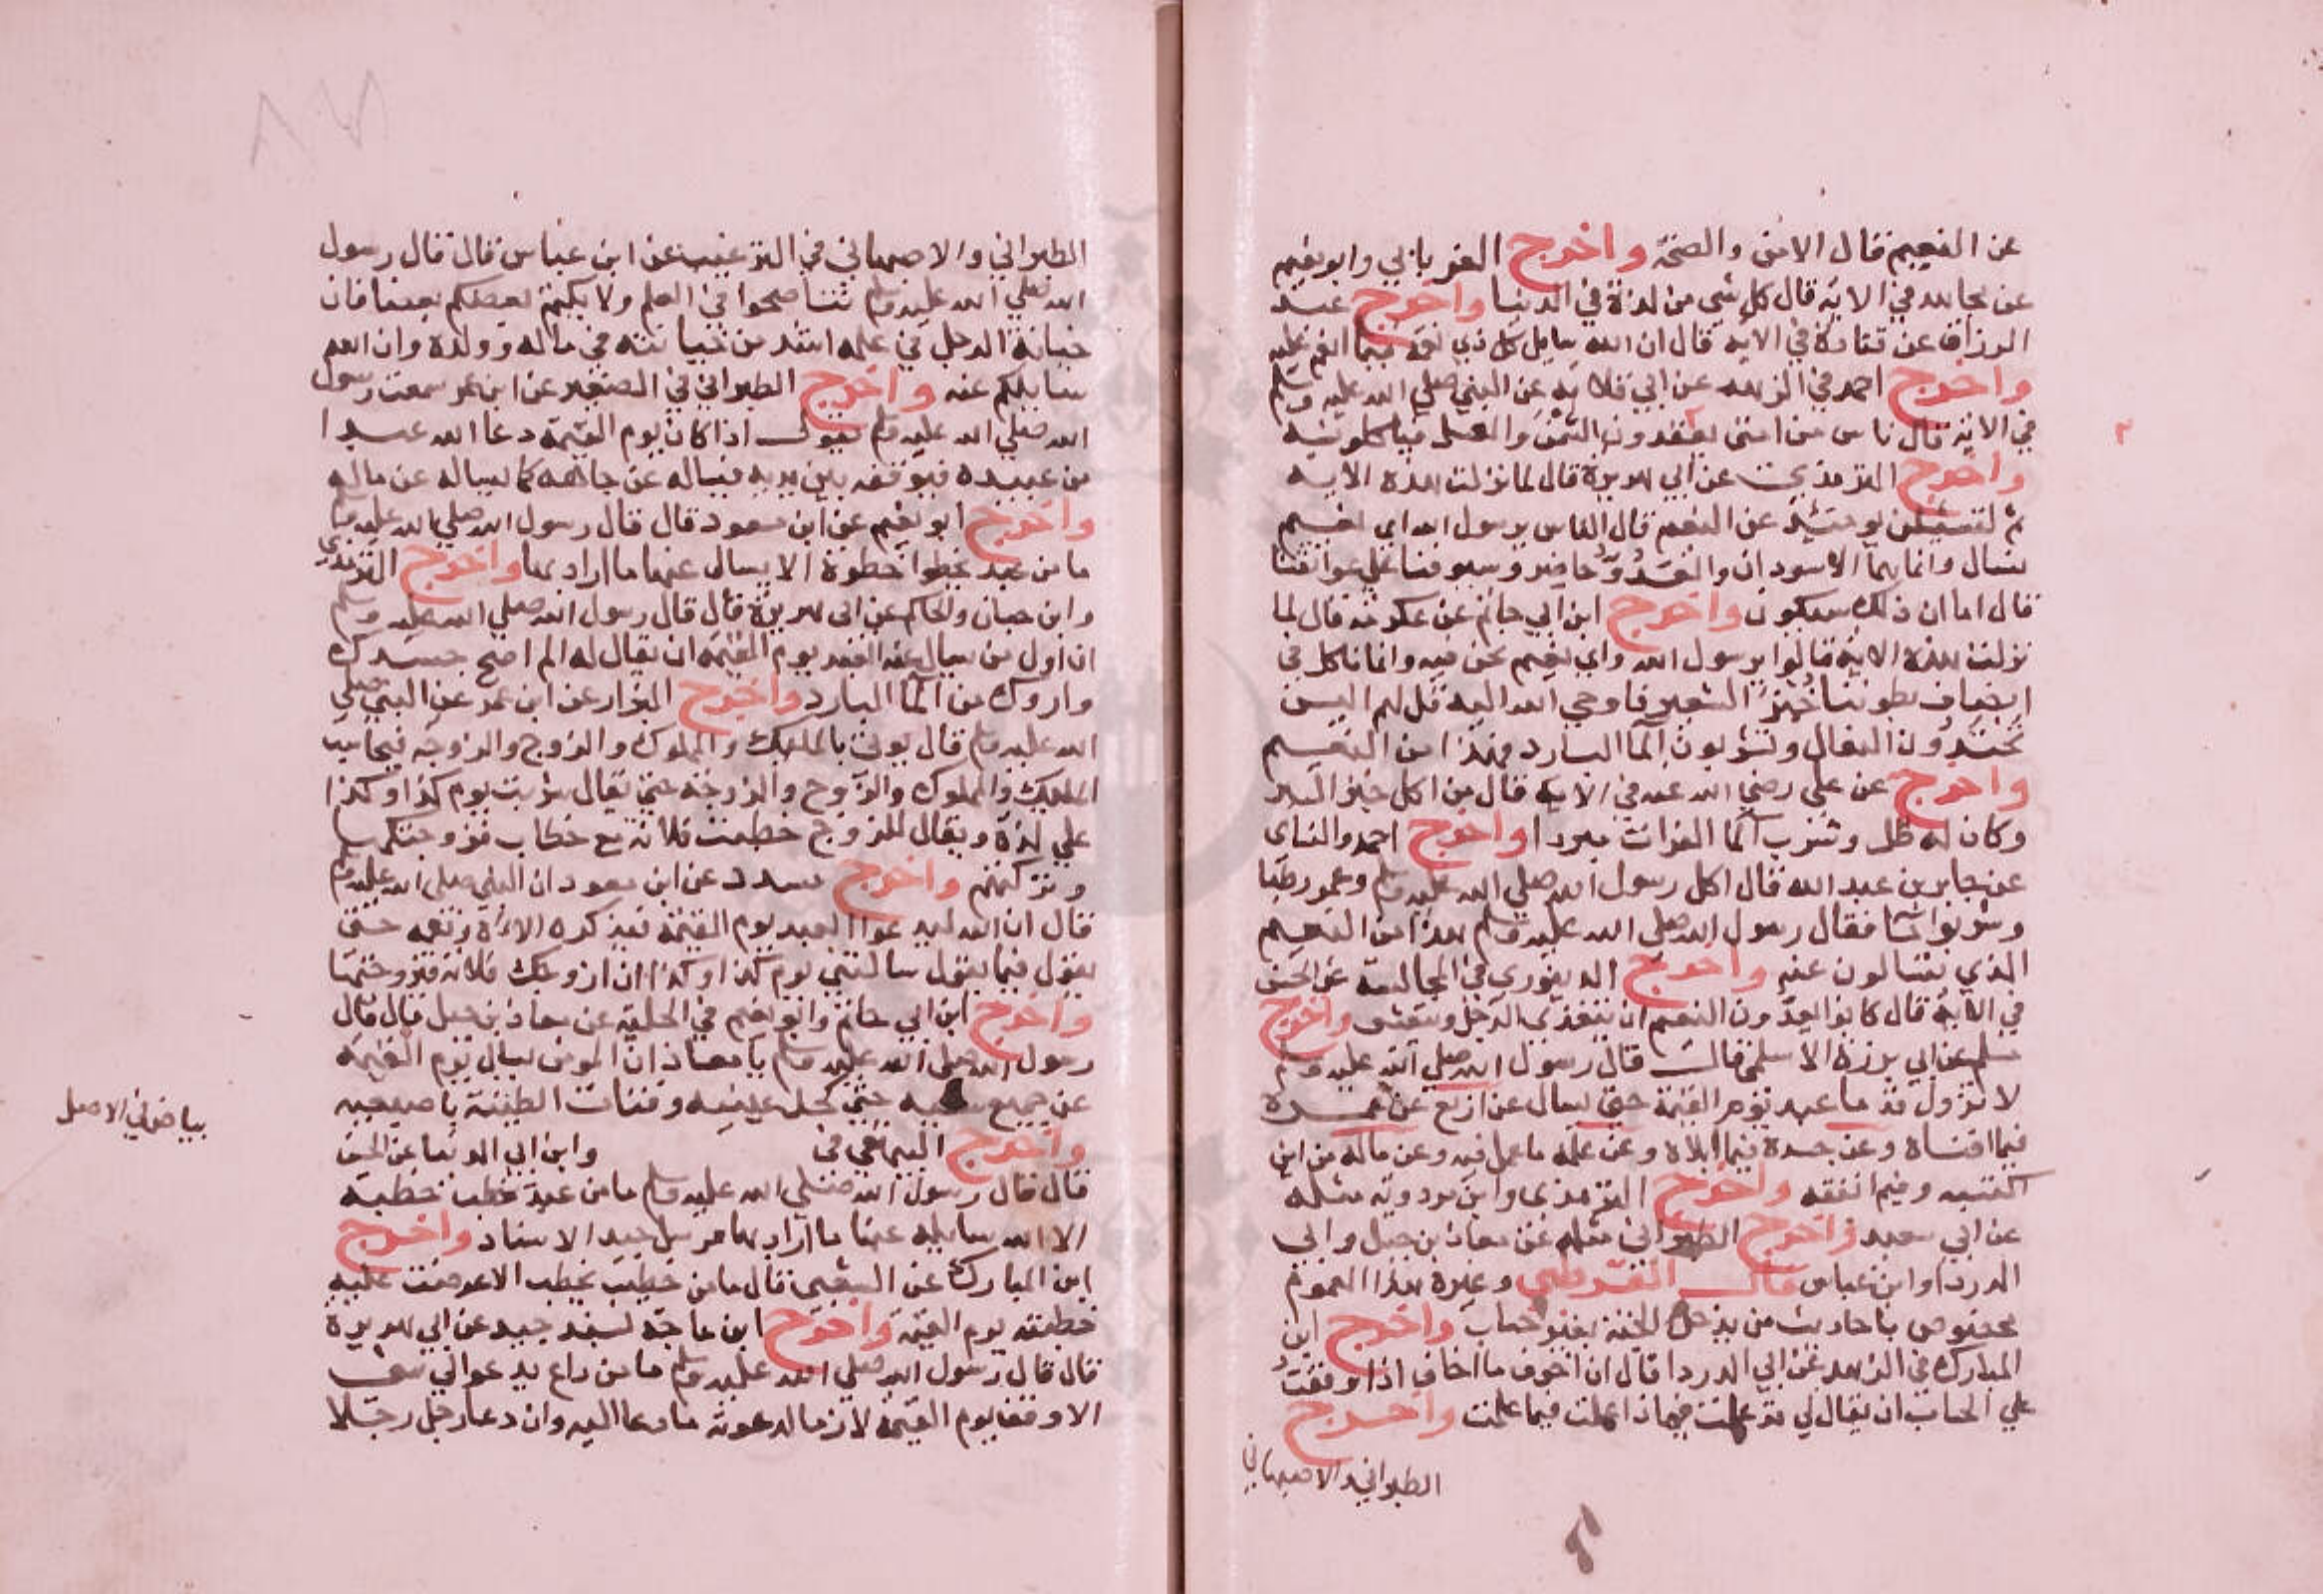 عن النعيم قال الامن والصحة واخرج الفريابي وابو نعيم
عن مجاهد في الاية قال كل شي من لذة في الدنيا واخرج عبد
الرزاق عن قتادة في الاية قال ان الله سايل كل ذي نعمة فيما انعم عليه
واخرج احمد في الزهد عن ابي قلابة عن النبي صلي الله عليه وسلم
في الاية قال ناس من امتي يعقدون السمن والعسل فياكلونه
واخرج الترمذي عن ابي هريرة قال لما نزلت هذه الاية
ثم لتسئلن يومئذ عن النعيم قال الناس يرسول الله اي نعيم
نسال وانما هما الاسودان والعدو حاضر وسيوفنا علي عواتقنا
قال اما ان ذلك سيكون واخرج ابن ابي حاتم عن عكرمة قال لما
نزلت هذه الاية قالوا يرسول الله واي نعيم نحن فيه وانما ناكل في
انصاف بطوننا خبز الشعير فاوحي الله اليه قل لهم اليس
تحتذون النعال وتشربون الما البارد فهذا من النعيم
واخرج عن علي رضي الله عنه في الاية قال من اكل خبز البر
وكان له ظل وشرب ما الفرات مبردا واخرج احمد والنساي
عن جابر بن عبد الله قال اكل رسول الله صلي الله عليه وسلم وعمر رطبا
وشربوا ما فقال رسول الله صلي الله عليه وسلم هذا من النعيم
الذي تسالون عنه واخرج الدينوري في المجالسة عن الحسن
في الاية قال كانوا يعدون النعيم ان يتغذي الرجل ويتعشى واخرج
مسلم عن ابي برزة الاسلمي قال قال رسول الله صلي الله عليه وسلم
لا تزول قدما عبد يوم القيمة حتي يسال عن اربع عن عمره
فيما افناه وعن جسده فيما ابلاه وعن علمه ما عمل فيه وعن ماله من اين
اكتسبه وفيم انفقه واخرج الترمذي وابن مردويه مثله
عن ابي سعيد واخرج الطبراني مثله عن معاذ بن جبل وابي
الدردا وابن عباس قال القرطبي وغيره هذا العموم
مخصوص باحاديث من يدخل الجنة بغير حساب واخرج ابن
المبارك في الزهد عن ابي الدردا قال ان اخوف ما اخاف اذا وقفت
علي الحساب ان يقال لي قد علمت فماذا عملت فيما علمت واخرج
الطبراني والاصبهاني
الطبراني والاصبهاني في الترغيب عن ابن عباس قال قال رسول
الله صلي الله عليه وسلم تناصحوا في العلم ولا يكتم بعضكم بعضا فان
خيانة الرجل في علمه اشد من خيانته في ماله وولده وان الله
سايلكم عنه واخرج الطبراني في الصغير عن ابن عمر سمعت رسول
الله صلي الله عليه وسلم يقول اذا كان يوم القيمة دعا الله عبدا
من عبيده فيوقفه بين يديه فيساله عن جاهه كما يساله عن ماله
واخرج ابو نعيم عن ابن مسعود قال قال رسول الله صلي الله عليه وسلم
ما من عبد يخطوا خطوة الا يسال عنها ما اراد بها واخرج الترمذي
وابن حبان والحاكم عن ابي هريرة قال قال رسول الله صلي الله عليه وسلم
ان اول من يسال عنه العبد يوم القيمة ان يقال له الم اصح جسدك
وارويك من الما البارد واخرج البزار عن ابن عمر عن النبي صلي
الله عليه وسلم قال يوتي بالمليك والمملوك والزوج والزوجه فيحاسب
المليك والمملوك والزوج والزوجة حتي يقال شربت يوم كذا وكذا
علي لذة ويقال للزوج خطبت فلانة مع خطاب فزوجتكها
وتركتهم واخرج مسدد عن ابن مسعود ان النبي صلي الله عليه وسلم
قال ان الله ليدعوا العبد يوم القيمة فيذكره الاءه ونعمه حتي
يقول فيما يقول سالتني يوم كذا وكذا ان ازوجك فلانة فزوجتها
واخرج ابن ابي حاتم وابو نعيم في الحلية عن معاذ بن جبل قال قال
رسول الله صلي الله عليه وسلم يا معاذ ان المومن يسال يوم القيمة
عن جميع سعيه حتي كحل عينيه وفتات الطينة باصبعيه
واخرج البيهقي في وابن ابي الدنيا عن الحسن
بياض في الاصل
قال قال رسول الله صلي الله عليه وسلم ما من عبد خطب خطبة
الا الله سايله عنها ما اراد بها مرسل جيد الاسناد واخرج
ابن المبارك عن الشعبي قال ما من خطيب يخطب الا عرضت عليه
خطبته يوم القيمة واخرج ابن ماجة بسند جيد عن ابي هريرة
قال قال رسول الله صلي الله عليه وسلم ما من داع يدعوا الي شي
الا وقف يوم القيمة لازما لدعوته ما دعا اليه وان دعا رجل رجلا